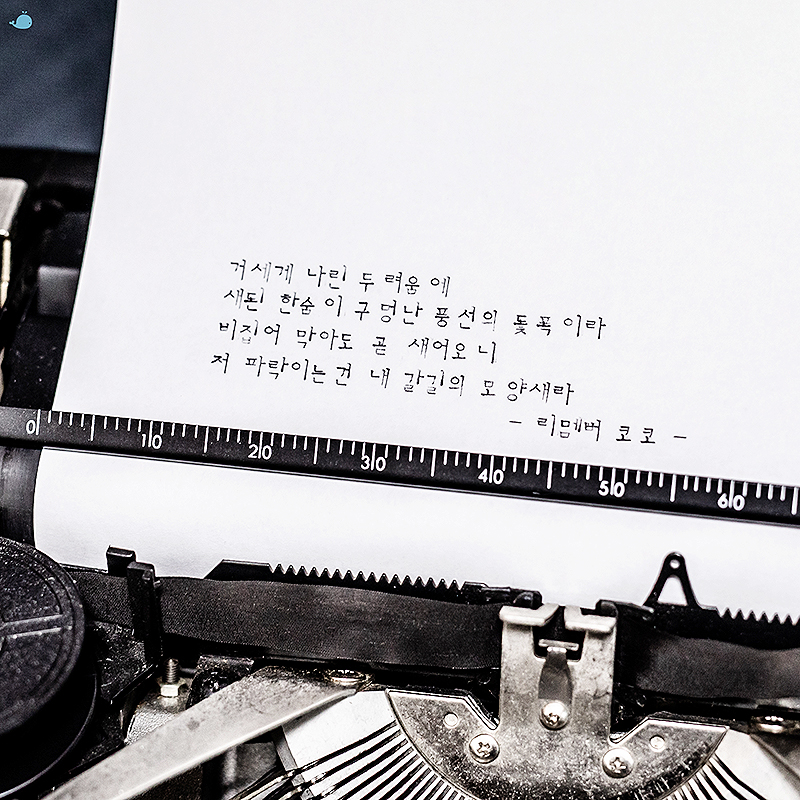 거세게 나린 두려움에
새된 한숨이 구멍난 풍선의 돛폭이라
비집어 막아도 곧 새어오니
저 파락이는건 내 갈길의 모양새라
- 리멤버 코코 -
0 10 20 30 40 50 60